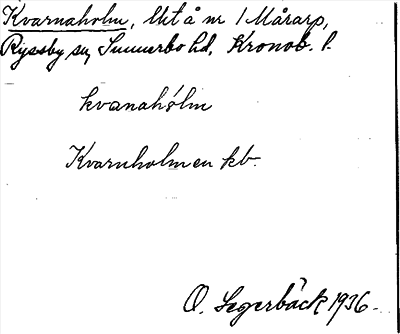 Kvarnaholm, lht å nr 1 Mårarp,
Ryssby sn, Sunnerbo hd, Kronob. l.
kvanahólm
Kvarnholmen kb.
O. Segerbäck 1936.